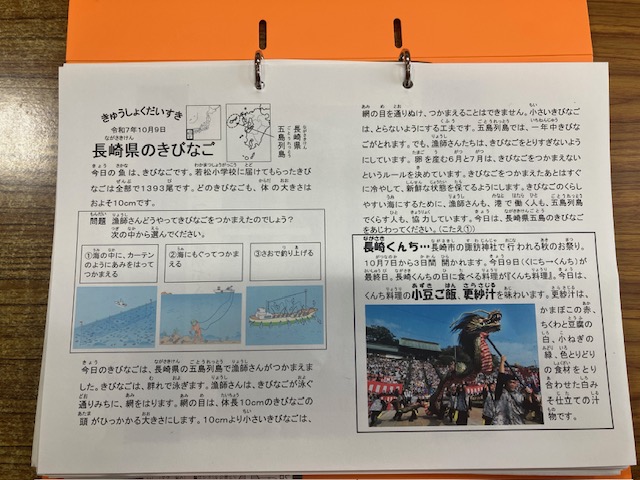 きゅうしょくだいすき
令和7年10月9日
長崎県のきびなご
長崎県
五島列島
今日の魚は、きびなごです。若松小学校に届けてもらったきび
なごは全部で1393尾です。どのきびなごも、体の大きさは
およそ10cmです。
問題 漁師さんどうやってきびなごをつかまえたのでしょう?
次の中から選んでください。
①海の中に、カーテン
のようにあみをはって
つかまえる
②海にもぐってつかま
える
③さおで釣り上げる
今日のきびなごは、長崎県の五島列島で漁師さんがつかまえま
した。きびなごは、群れで泳ぎます。漁師さんは、きびなごが泳ぐ
通りみちに、網をはります。網の目は、体長10cmのきびなごの
頭がひっかかる大きさにします。10cmより小さいきびなごは、
網の目を通りぬけ、つかまえることはできません。小さいきびなご
は、とらないようにする工夫です。五島列島では、一年中きびな
ごがとれます。でも、漁師さんたちは、きびなごをとりすぎないよう
にしています。卵を産む6月と7月は、きびなごをつかまえない
というルールを決めています。きびなごをつかまえたあとはすぐ
に冷やして、新鮮な状態を保てるようにします。きびなごのくらし
やすい海にするために、漁師さんも、港で働く人も、五島列島
でくらす人も、協力しています。今日は、長崎県五島のきびなご
をあじわってください。(こたえ①)
長崎くんち…長崎市の諏訪神社で行われる秋のお祭り。
10月7日から3日間開かれます。今日9日(くにち→くんち)が
最終日。長崎くんちの日に食べる料理が『くんち料理』。今日は、
くんち料理の小豆ご飯、更紗汁を味わいます。更紗汁は、
かまぼこの赤、
ちくわと豆腐の
白、小ねぎの
緑、色とりどり
の食材をとり
合わせた白み
そ仕立ての汁
物です。